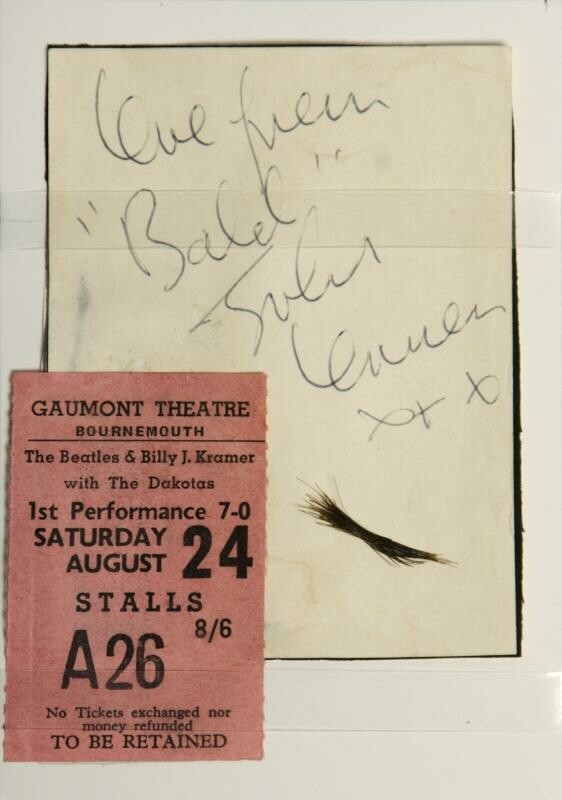 Love from
"Bald"
John
Lennon
xxx
GAUMONT THEATRE
BOURNEMOUTH
The Beatles & Billy J. Kramer
with The Dakotas
1st Performance 7-0
SATURDAY
AUGUST 24
STALLS
8/6
A26
No Tickets exchanged nor
money refunded
TO BE RETAINED